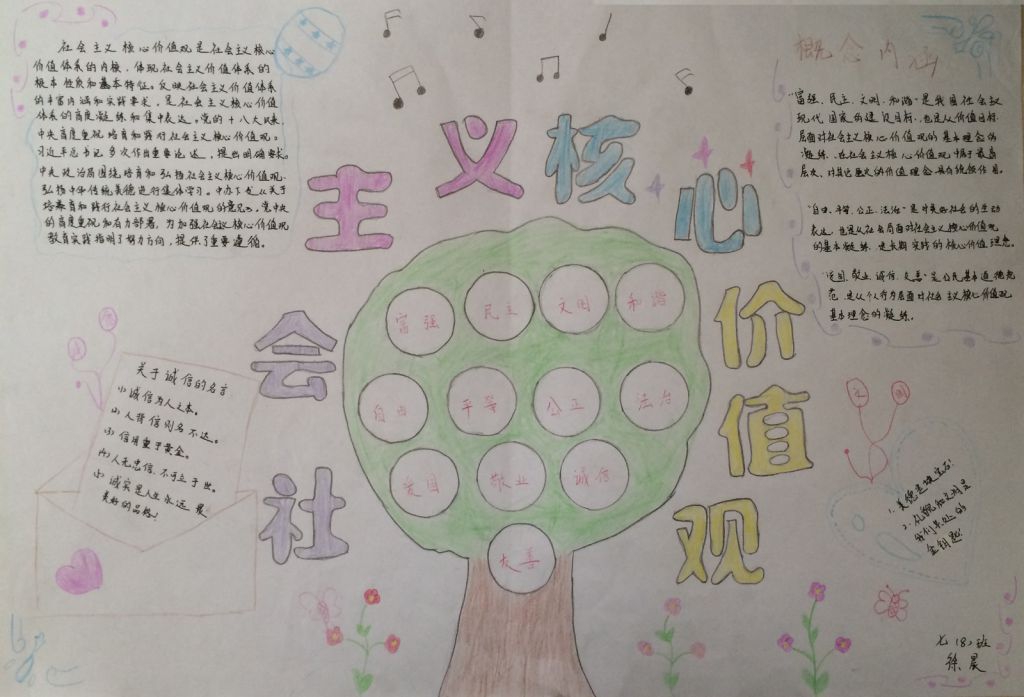 社会主义核心价值观
社会主义核心价值观是社会主义核心
价值体系的内核，体现社会主义价值体系的
根本性质和基本特征。反映社会主义价值体系
的丰富内涵和实践要求，是社会主义核心价值
体系的高度凝练和集中表达。党的十八大以来，
中央高度重视培育和践行社会主义核心价值观。
习近平总书记多次作出重要论述，提出明确要求。
中央政治局围绕培育和弘扬社会主义核心价值观
弘扬中华传统美德进行集体学习。中办下发关于
培育和践行社会主义核心价值观的意见》，党中央
的高度重视和有力部署，为加强社会主义核心价值观
教育实践指明了努力方向，提供了重要遵循。
概念内涵
"富强、民主、文明、和谐"是我国社会主义
现代国家的建设目标，也是从价值目标
层面对社会主义核心价值观的基本理念的
凝练，在社会主义核心价值观中居于最高
层次，对其它层次的价值理念具有统领作用。
"自由、平等、公正、法治"是对美好社会的生动
表述，也是从社会层面对社会主义核心价值观
的基本凝练，是长期实践的核心价值理念。
"爱国、敬业、诚信、友善"是公民基本道德规
范，是从个人行为层面对社会主义核心价值观
基本理念的凝练。
富强 民主 文明 和谐
自由 平等 公正 法治
爱国 敬业 诚信
友善
关于诚信的名言
(1)诚信为人之本。
(2)人背信则名不达。
(3)信用重于黄金。
(4)人无忠信，不可立于世。
(5)诚实是人生永远最
美好的品格！
文 明
1.美德是块宝石！
2.礼貌和文明是
我们共处的
金钥匙
七(8)班
徐晨